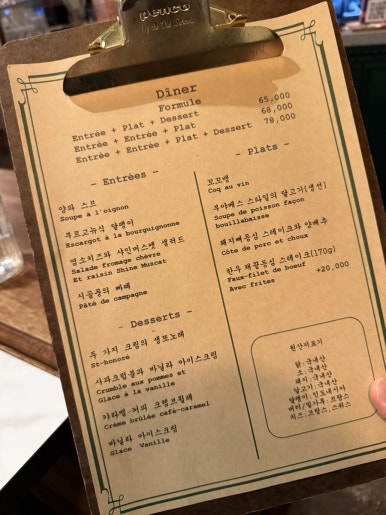 PENCO
Dîner
Formule
Entrée + Plat + Dessert 65,000
Entrée + Entrée + Plat 68,000
Entrée + Entrée + Plat + Dessert 78,000
- Entrées -
양파 스프
Soupe à l'oignon
부르고뉴식 달팽이
Escargot à la bourguignonne
염소치즈와 샤인머스켓 샐러드
Salade fromage chèvre
Et raisin Shine Muscat
시골풍의 빠떼
Pâté de campagne
- Desserts -
두 가지 크림의 생또노레
St-honoré
사과크럼블과 바닐라 아이스크림
Crumble aux pommes et
Glace à la vanille
카라멜-커피 크렘브륄레
Crème brûlée café-caramel
바닐라 아이스크림
Glace Vanille
- Plats -
꼬꼬뱅
Coq au vin
부야베스 스타일의 달고기(생선)
Soupe de poisson façon
bouillabaisse
돼지뼈등심 스테이크와 양배추
Côte de porc et choux
한우 채끝등심 스테이크(170g)
Faux-filet de boeuf +20,000
Avec frites
원산지표기
닭:국내산
소:국내산
돼지:국내산
달고기:국내산
달팽이:인도네시아
버터/밀가루:프랑스
치즈:프랑스, 스위스